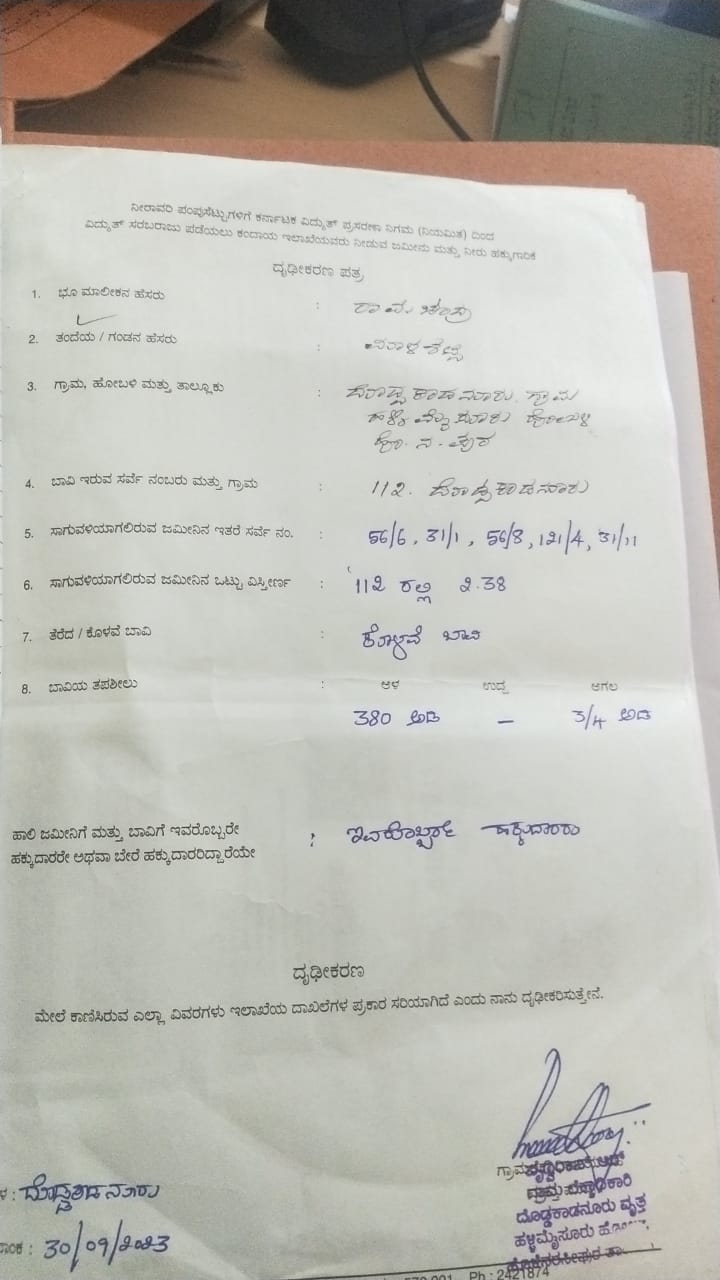 ನೀರಾವರಿ ಪಂಪುಸೆಟ್ಟುಗಳಿಗೆ ಕರ್ನಾಟಕ ವಿದ್ಯುತ್ ಪ್ರಸರಣಾ ನಿಗಮ (ನಿಯಮಿತ) ದಿಂದ
ವಿದ್ಯುತ್ ಸರಬರಾಜು ಪಡೆಯಲು ಕಂದಾಯ ಇಲಾಖೆಯವರು ನೀಡುವ ಜಮೀನು ಮತ್ತು ನೀರು ಹಕ್ಕುಗಾರಿಕೆ
ದೃಢೀಕರಣ ಪತ್ರ
1. ಭೂ ಮಾಲೀಕನ ಹೆಸರು :
2. ತಂದೆಯ / ಗಂಡನ ಹೆಸರು :
3. ಗ್ರಾಮ, ಹೋಬಳಿ ಮತ್ತು ತಾಲ್ಲೂಕು : ದೊಡ್ಡಕಾಡನೂರು ಗ್ರಾಮ
ಹಳ್ಳಿಮೈಸೂರು ಹೋಬಳಿ
ಹೊ. ನ. ಪುರ
4. ಬಾವಿ ಇರುವ ಸರ್ವೆ ನಂಬರು ಮತ್ತು ಗ್ರಾಮ : 112. ದೊಡ್ಡಕಾಡನೂರು
5. ಸಾಗುವಳಿಯಾಗಲಿರುವ ಜಮೀನಿನ ಇತರೆ ಸರ್ವೆ ನಂ. : 56/6, 31/1, 56/8, 121/4, 31/11
6. ಸಾಗುವಳಿಯಾಗಲಿರುವ ಜಮೀನಿನ ಒಟ್ಟು ವಿಸ್ತೀರ್ಣ : 112 ರಲ್ಲಿ 2.38
7. ತೆರೆದ / ಕೊಳವೆ ಬಾವಿ : ಕೊಳವೆ ಬಾವಿ
8. ಬಾವಿಯ ತಪಶೀಲು : ಆಳ ಉದ್ದ ಅಗಲ
380 ಅಡಿ – 3/4 ಅಡಿ
ಹಾಲಿ ಜಮೀನಿಗೆ ಮತ್ತು ಬಾವಿಗೆ ಇವರೊಬ್ಬರೇ : ಇವರೊಬ್ಬರೇ ಹಕ್ಕುದಾರರು
ಹಕ್ಕುದಾರರೇ ಅಥವಾ ಬೇರೆ ಹಕ್ಕುದಾರರಿದ್ದಾರೆಯೇ
ದೃಢೀಕರಣ
ಮೇಲೆ ಕಾಣಿಸಿರುವ ಎಲ್ಲಾ ವಿವರಗಳು ಇಲಾಖೆಯ ದಾಖಲೆಗಳ ಪ್ರಕಾರ ಸರಿಯಾಗಿದೆ ಎಂದು ನಾನು ದೃಢೀಕರಿಸುತ್ತೇನೆ.
ದೊಡ್ಡಕಾಡನೂರು ವೃತ್ತ
ಹಳ್ಳಿಮೈಸೂರು
: ದೊಡ್ಡಕಾಡನೂರು
: 30/09/2023
Ph : 2421874